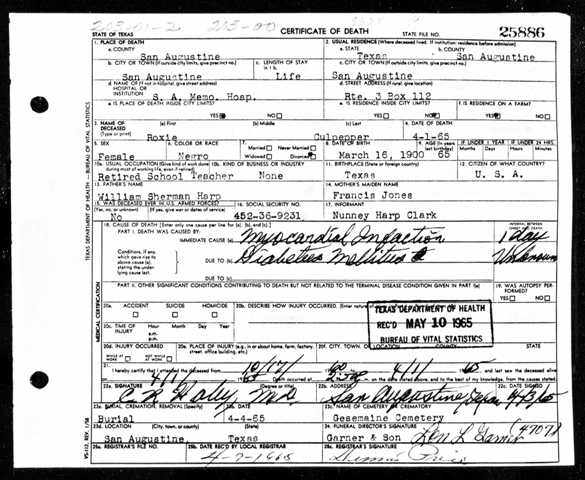 STATE OF TEXAS CERTIFICATE OF DEATH STATE FILE NO. 25886
1. PLACE OF DEATH
a. COUNTY
San Augustine
2. USUAL RESIDENCE (Where deceased lived. If institution: residence before admission)
a. STATE
Texas
b. COUNTY
San Augustine
b. CITY OR TOWN (If outside city limits, give precinct no.)
San Augustine
c. LENGTH OF STAY
Life
c. CITY OR TOWN (If outside city limits, give precinct no.)
San Augustine
d. NAME OF (If not in hospital, give street address)
HOSPITAL OR
INSTITUTION
S. A. Memo. Hosp.
d. STREET ADDRESS (If rural, give location)
Rte. 3 Box 112
e. IS PLACE OF DEATH INSIDE CITY LIMITS?
YES NO
e. IS RESIDENCE INSIDE CITY LIMITS?
YES NO
f. IS RESIDENCE ON A FARM?
YES NO
3. NAME OF
DECEASED
(Type or print)
(a) First
Roxie
(b) Middle
(c) Last
Culpepper
4. DATE OF DEATH
4-1-65
5. SEX
Female
6. COLOR OR RACE
Negro
7. Married Never Married
Widowed Divorced
8. DATE OF BIRTH
March 16, 1900
9. AGE (In years
last birthday)
65
IF UNDER 1 YEAR
Months Days
IF UNDER 24 HRS.
Hours Min.
10a. USUAL OCCUPATION (Give kind of work done
during most of working life, even if retired)
Retired School Teacher
10b. KIND OF BUSINESS OR INDUSTRY
None
11. BIRTHPLACE (State or foreign country)
Texas
12. CITIZEN OF WHAT COUNTRY?
U. S. A.
13. FATHER'S NAME
William Sherman Harp
14. MOTHER'S MAIDEN NAME
Francis Jones
15. WAS DECEASED EVER IN U.S. ARMED FORCES?
(Yes, no, or unknown) (If yes, give war or dates of service)
No
16. SOCIAL SECURITY NO.
452-36-9231
17. INFORMANT
Nunney Harp Clark
18. CAUSE OF DEATH [Enter only one cause per line for (a), (b), and (c).]
PART I. DEATH WAS CAUSED BY:
IMMEDIATE CAUSE (a)
Myocardial Infaction
INTERVAL BETWEEN
ONSET AND DEATH
1 day
Conditions, if any,
which gave rise to
above cause (a),
stating the under-
lying cause last.
DUE TO (b)
Diabetes Mellitis
Unknown
DUE TO (c)
PART II. OTHER SIGNIFICANT CONDITIONS CONTRIBUTING TO DEATH BUT NOT RELATED TO THE TERMINAL DISEASE CONDITION GIVEN IN PART I(a)
19. WAS AUTOPSY PERFORMED?
YES NO
20a. ACCIDENT SUICIDE HOMICIDE
20b. DESCRIBE HOW INJURY OCCURRED.
20c. TIME OF
INJURY
Hour Month Day Year
TEXAS DEPARTMENT OF HEALTH
REC'D MAY 10 1965
BUREAU OF VITAL STATISTICS
20d. INJURY OCCURRED
WHILE AT WORK NOT WHILE AT WORK
20e. PLACE OF INJURY (e.g., in or about home, farm, factory,
street, office building, etc.)
20f. CITY, TOWN, OR LOCATION COUNTY STATE
21. I hereby certify that I attended the deceased from 10/17/ 4/1/ 65 and last saw the deceased alive
Death occurred at m. on the date stated above, and to the best of my knowledge, from the causes stated.
22a. SIGNATURE (Degree or title)
22b. ADDRESS
San Augustine, Texas
22c. DATE SIGNED
23a. BURIAL, CREMATION, REMOVAL (Specify)
Burial
23b. DATE
4-4-65
23c. NAME OF CEMETERY OR CREMATORY
Gesemaine Cemetery
23d. LOCATION (City, town, or county) (State)
San Augustine, Texas
24. FUNERAL DIRECTOR'S SIGNATURE
Garner & Son
25a. REGISTRAR'S FILE NO.
25b. DATE REC'D BY LOCAL REGISTRAR
25c. REGISTRAR'S SIGNATURE
TEXAS DEPARTMENT OF HEALTH — BUREAU OF VITAL STATISTICS
MEDICAL CERTIFICATION